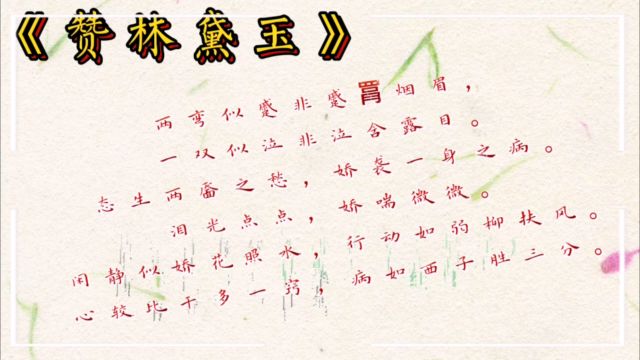 《赞林黛玉》
两弯似蹙非蹙罥烟眉，
一双似泣非泣含露目。
态生两靥之愁，娇袭一身之病。
泪光点点，娇喘微微。
闲静似娇花照水，行动如弱柳扶风。
心较比干多一窍，病如西子胜三分。